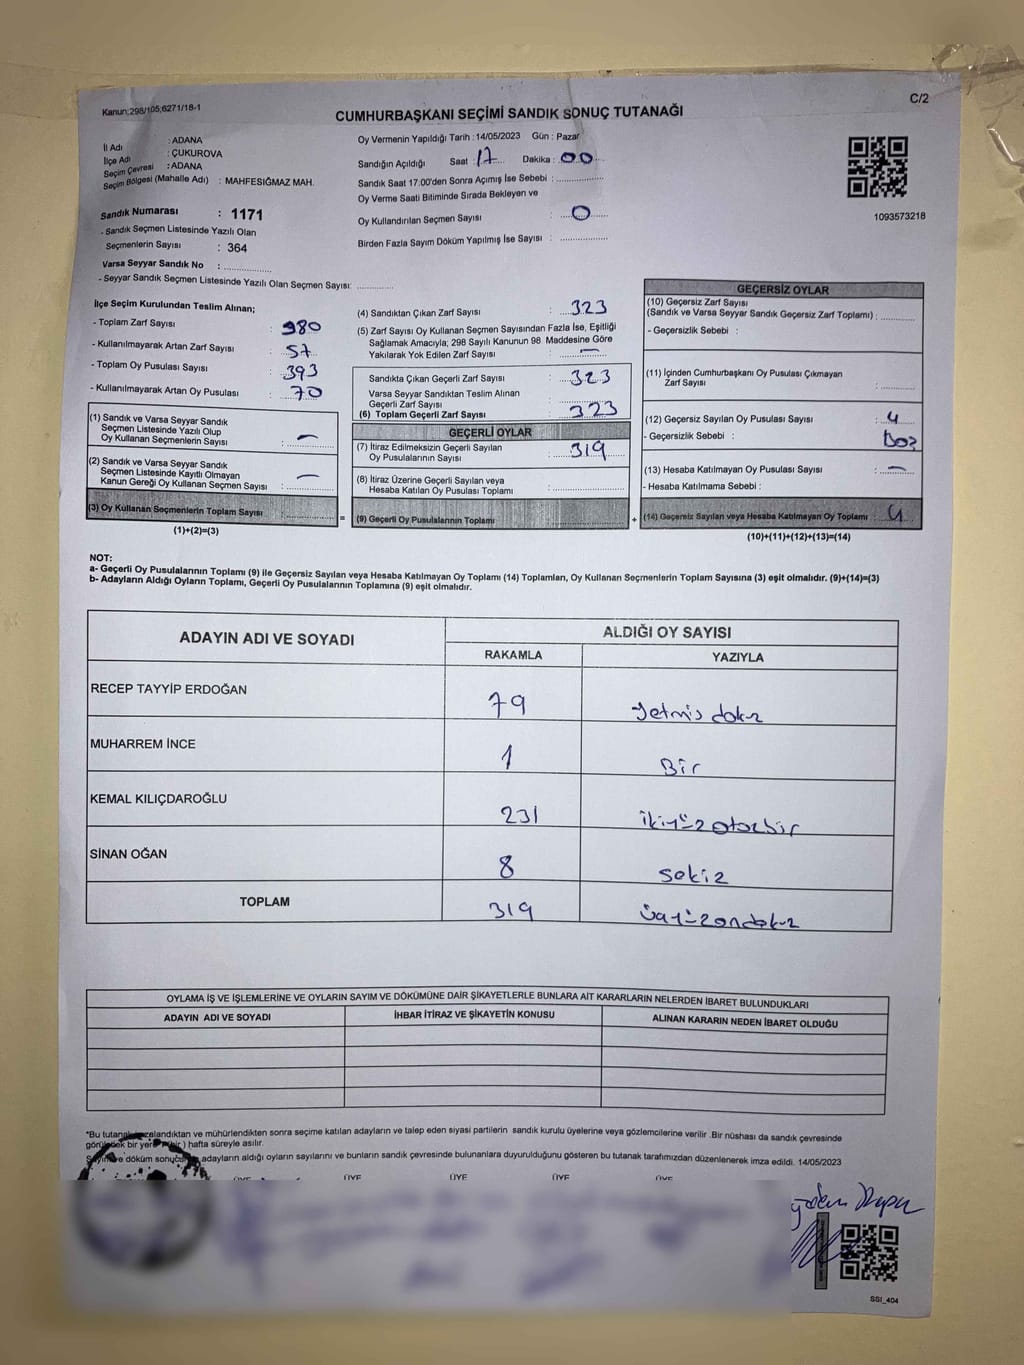 Kanun:298/105,6271/18-1
C/2
CUMHURBAŞKANI SEÇİMİ SANDIK SONUÇ TUTANAĞI
İl Adı : ADANA
İlçe Adı : ÇUKUROVA
Seçim Çevresi : ADANA
Seçim Bölgesi (Mahalle Adı) : MAHFESIĞMAZ MAH.
Sandık Numarası : 1171
- Sandık Seçmen Listesinde Yazılı Olan
Seçmenlerin Sayısı : 364
Varsa Seyyar Sandık No :
- Seyyar Sandık Seçmen Listesinde Yazılı Olan Seçmen Sayısı:
Oy Vermenin Yapıldığı Tarih : 14/05/2023 Gün : Pazar
Sandığın Açıldığı Saat : 17 Dakika : 00
Sandık Saat 17.00'den Sonra Açımış İse Sebebi :
Oy Verme Saati Bitiminde Sırada Bekleyen ve
Oy Kullandırılan Seçmen Sayısı : 0
Birden Fazla Sayım Döküm Yapılmış İse Sayısı :
1093573218
İlçe Seçim Kurulundan Teslim Alınan;
- Toplam Zarf Sayısı : 380
- Kullanılmayarak Artan Zarf Sayısı : 57
- Toplam Oy Pusulası Sayısı : 393
- Kullanılmayarak Artan Oy Pusulası : 70
(1) Sandık ve Varsa Seyyar Sandık
Seçmen Listesinde Yazılı Olup
Oy Kullanan Seçmenlerin Sayısı : –
(2) Sandık ve Varsa Seyyar Sandık
Seçmen Listesinde Kayıtlı Olmayan
Kanun Gereği Oy Kullanan Seçmen Sayısı : –
(3) Oy Kullanan Seçmenlerin Toplam Sayısı :
(1)+(2)=(3)
(4) Sandıktan Çıkan Zarf Sayısı : 323
(5) Zarf Sayısı Oy Kullanan Seçmen Sayısından Fazla İse, Eşitliği
Sağlamak Amacıyla; 298 Sayılı Kanunun 98. Maddesine Göre
Yakılarak Yok Edilen Zarf Sayısı : –
Sandıkta Çıkan Geçerli Zarf Sayısı : 323
Varsa Seyyar Sandıktan Teslim Alınan
Geçerli Zarf Sayısı
(6) Toplam Geçerli Zarf Sayısı : 323
GEÇERLİ OYLAR
(7) İtiraz Edilmeksizin Geçerli Sayılan
Oy Pusulalarının Sayısı : 319
(8) İtiraz Üzerine Geçerli Sayılan veya
Hesaba Katılan Oy Pusulası Toplamı :
= (9) Geçerli Oy Pusulalarının Toplamı
GEÇERSİZ OYLAR
(10) Geçersiz Zarf Sayısı
(Sandık ve Varsa Seyyar Sandık Geçersiz Zarf Toplamı) :
- Geçersizlik Sebebi :
(11) İçinden Cumhurbaşkanı Oy Pusulası Çıkmayan
Zarf Sayısı :
(12) Geçersiz Sayılan Oy Pusulası Sayısı : 4
- Geçersizlik Sebebi : Boş
(13) Hesaba Katılmayan Oy Pusulası Sayısı : –
- Hesaba Katılmama Sebebi :
+ (14) Geçersiz Sayılan veya Hesaba Katılmayan Oy Toplamı : 4
(10)+(11)+(12)+(13)=(14)
NOT:
a- Geçerli Oy Pusulalarının Toplamı (9) ile Geçersiz Sayılan veya Hesaba Katılmayan Oy Toplamı (14) Toplamları, Oy Kullanan Seçmenlerin Toplam Sayısına (3) eşit olmalıdır. (9)+(14)=(3)
b- Adayların Aldığı Oyların Toplamı, Geçerli Oy Pusulalarının Toplamına (9) eşit olmalıdır.
ADAYIN ADI VE SOYADI ALDIĞI OY SAYISI
RAKAMLA YAZIYLA
RECEP TAYYİP ERDOĞAN 79 Yetmiş dokuz
MUHARREM İNCE 1 Bir
KEMAL KILIÇDAROĞLU 231 ikiyüzotuzbir
SİNAN OĞAN 8 sekiz
TOPLAM 319 üçyüzondokuz
OYLAMA İŞ VE İŞLEMLERİNE VE OYLARIN SAYIM VE DÖKÜMÜNE DAİR ŞİKAYETLERLE BUNLARA AİT KARARLARIN NELERDEN İBARET BULUNDUKLARI
ADAYIN ADI VE SOYADI İHBAR İTİRAZ VE ŞİKAYETİN KONUSU ALINAN KARARIN NEDEN İBARET OLDUĞU
*Bu tutanak landıktan ve mühürlendikten sonra seçime katılan adayların ve talep eden siyasi partilerin sandık kurulu üyelerine veya gözlemcilerine verilir .Bir nüshası da sandık çevresinde
bir yere hafta süreyle asılır.
döküm adayların aldığı oyların sayılarını ve bunların sandık çevresinde bulunanlara duyurulduğunu gösteren bu tutanak tarafımızdan düzenlenerek imza edildi. 14/05/2023
ÜYE ÜYE ÜYE ÜYE ÜYE
SSI_404